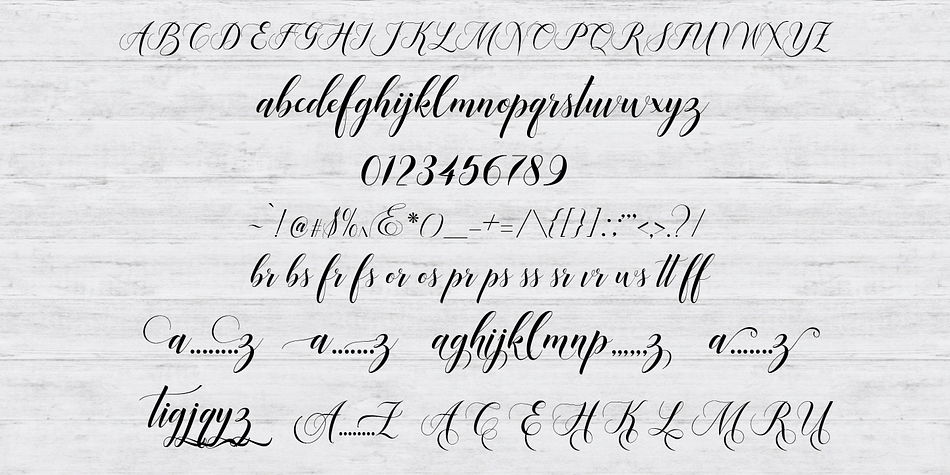 ABCDEFGHIJKLMNOPQRSTUVWXYZ
abcdefghijklmnopqrstuvwxyz
0123456789
~`!@#$%^&*()__-+=/\{[}]:;"'<>.?/
br bs fr fs or os pr ps ss sr vr ws tt ff
a........z a.......z aghijklmnp,,,,,,z a.......z
tigjqyz A........Z A C E H K L M R U